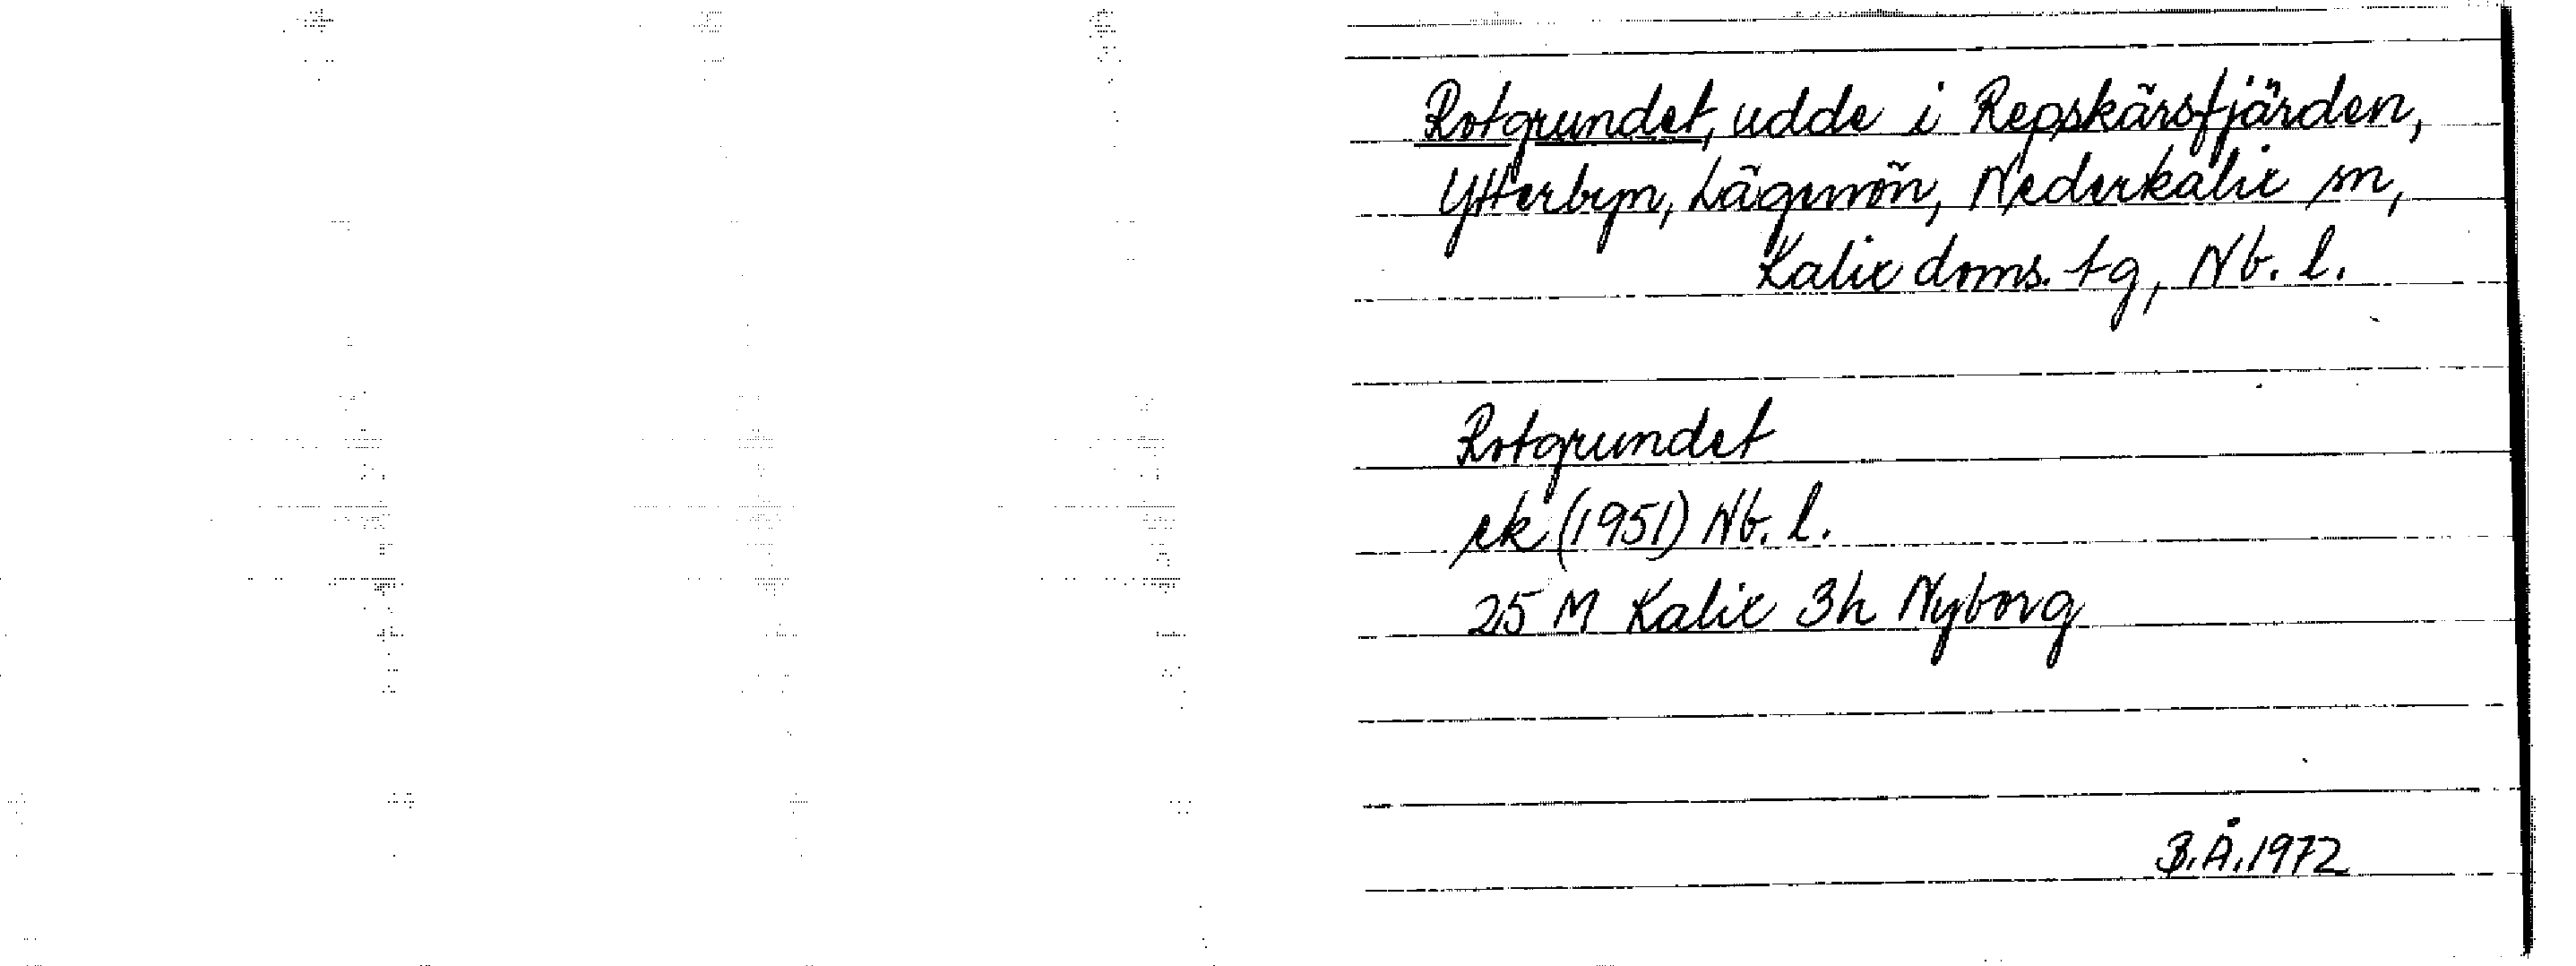 Rotgrundet, udde i Repskärsfjärden,
Ytterbyn, Lägenön, Nederkalix sn,
Kalix doms. tg, Nb. l.
Rotgrundet
ek (1951) Nb. l.
25 M Kalix 3h Nyborg
B.Å.1972